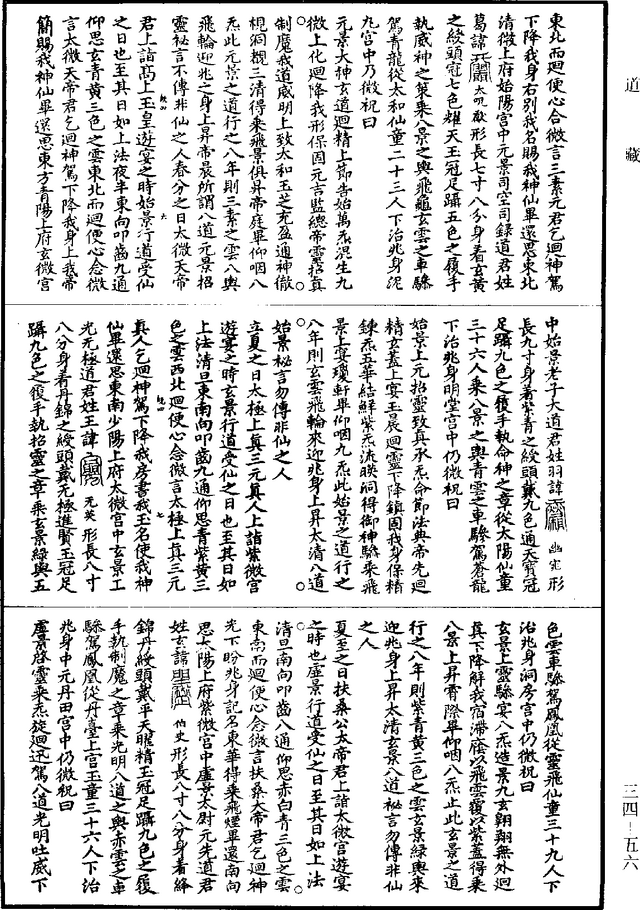 道藏
三四-五六
東北而迴便心念微言三素元君乞迴神駕
下降我身右別我名賜我神仙畢還思東北
清微上府始陽宮中元景司空司録道君姓
葛諱 太呪歡形長七寸八分身着玄黄
之綬頭冠七色耀天玉冠足躡五色之履手
執威神之策乘八景之輿飛龜玄雲之車驂
駕青龍從太和仙童二十三人下治兆身泥
九宮中乃微祝曰
元景大神玄道迴精上節告始萬炁混生九
微上化迴降我形保固元吉監總帝靈招真
制魔我道威明上致太和玉芝充盈通神徹
視洞覩三清得乘飛景俱昇帝庭畢仰咽八
炁此元景之道行之八年則三素之雲八輿
飛輪迎兆之身上昇帝晨所謂八道元景招
靈祕言不傳非仙之人春分之日太微天帝
君上詣高上玉皇遊宴之時始景行道受仙
之日也至其日如上法夜半東向叩齒九通
仰思玄青黄三色之雲東北而迴便心念微
言太微天帝君乞迴神駕下降我身上我帝
簡賜我神仙畢還思東方青陽上府玄微宮
中始景老子大道君姓羽諱 幽定形
長九寸身着紫青之綬頭戴九色通天寶冠
足躡九色之履手執命神之章從太陽仙童
三十六人乘八景之輿青雲之車驂駕蒼龍
下治兆身明堂宮中仍微祝曰
始景上元招靈致真承炁命節法典帝先迴
精玄蓋上宴玉晨迴靈下降鎮固我身保精
鍊炁五華結鮮紫炁流暎洞得御神驂乘飛
景上宴瓊軒畢仰咽九炁此始景之道行之
八年則玄雲飛輪來迎兆身上昇太清八道
始景祕言勿傳非仙之人
立夏之日太極上真三元真人上詣紫微宮
遊宴之時玄景行道受仙之日也至其日如
上法清旦東南向叩齒九通仰思青紫黄三
色之雲西北迴便心念微言太極上真三元
真人乞迴神駕下降我房書我玉名使我神
仙畢還思東南少陽上府太微宮中玄景工
光无極道君姓王諱 元炎形長八寸
八分身着丹錦之綬頭戴无極進賢玉冠足
躡九色之履手執招靈之章乘玄景緑輿五
色雲車驂駕鳳凰從靈飛仙童三十九人下
治兆身洞房宮中仍微祝曰
玄景上靈驂宴八炁造景九玄翱翔無外迴
真下降解我宿滯廕以飛雲覆以紫蓋得乘
八景上昇霄際畢仰咽八炁止此玄景之道
行之八年則紫青黄三色之雲玄景緑輿來
迎兆身上昇太清玄景八道祕言勿傳非仙
之人
夏至之日扶桑公太帝君上詣太微宮遊宴
之時也虚景行道受仙之日至其日如上法
清旦南向叩齒八通仰思赤白青三色之雲
東南而迴便心念微言扶桑大帝君乞迴神
光下盼兆身記名東華得乘飛煙畢還南向
思太陽上府紫微宮中虚景太尉元先道君
姓玄諱 伯史形長八寸八分身着絳
錦丹綬頭戴平天耀精玉冠足躡九色之履
手執制魔之章乘光明八道之輿赤雲之車
驂駕鳳凰從丹臺上宮玉童三十六人下治
兆身中元丹田宮中仍微祝曰
虚景啓靈乘炁旋迴迅駕八道光明吐威下